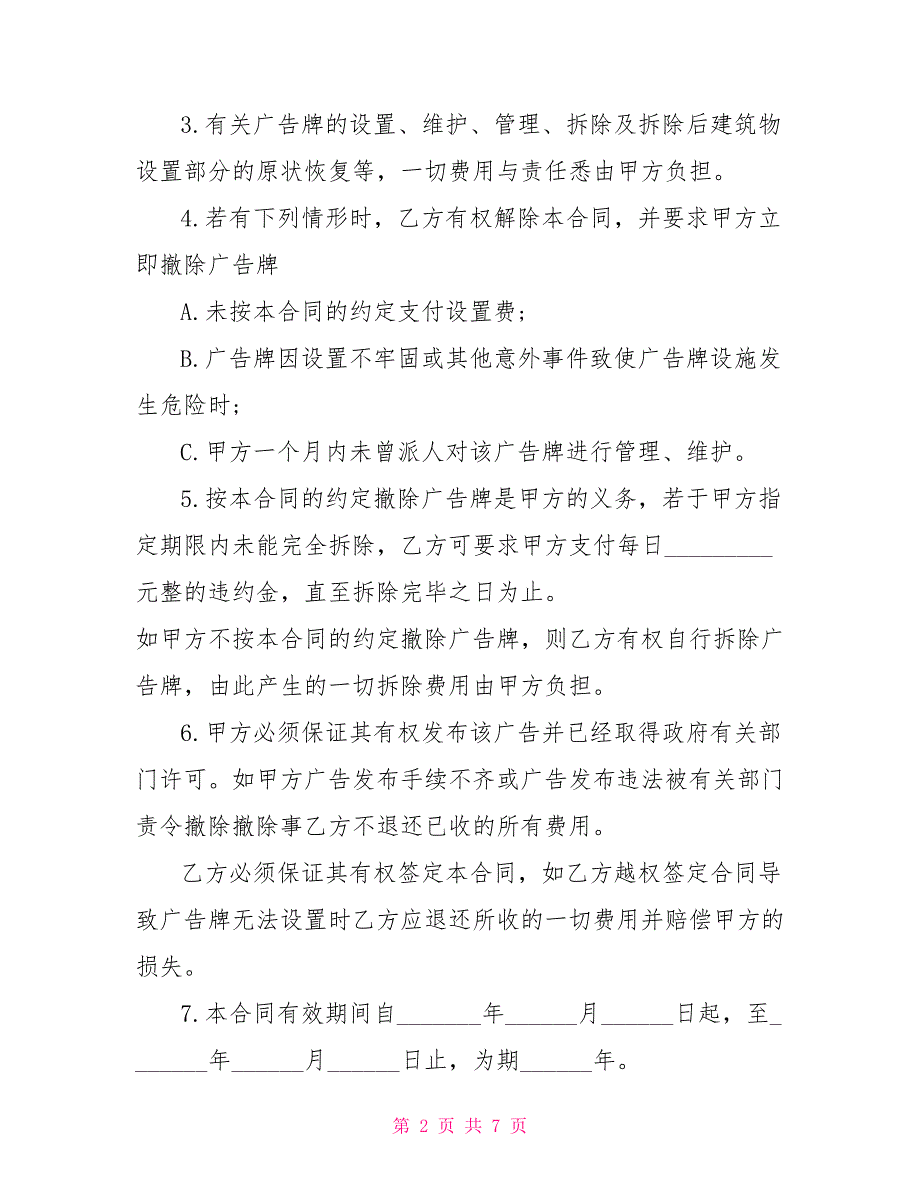 3.有关广告牌的设置、维护、管理、拆除及拆除后建筑物
设置部分的原状恢复等，一切费用与责任悉由甲方负担。
4.若有下列情形时，乙方有权解除本合同，并要求甲方立
即撤除广告牌
A.未按本合同的约定支付设置费;
B.广告牌因设置不牢固或其他意外事件致使广告牌设施发
生危险时;
C.甲方一个月内未曾派人对该广告牌进行管理、维护。
5.按本合同的约定撤除广告牌是甲方的义务，若于甲方指
定期限内未能完全拆除，乙方可要求甲方支付每日_________
元整的违约金，直至拆除完毕之日为止。
如甲方不按本合同的约定撤除广告牌，则乙方有权自行拆除广
告牌，由此产生的一切拆除费用由甲方负担。
6.甲方必须保证其有权发布该广告并已经取得政府有关部
门许可。如甲方广告发布手续不齐或广告发布违法被有关部门
责令撤除撤除事乙方不退还已收的所有费用。
乙方必须保证其有权签定本合同，如乙方越权签定合同导
致广告牌无法设置时乙方应退还所收的一切费用并赔偿甲方的
损失。
7.本合同有效期间自_______年______月______日起，至_
______年______月______日止，为期______年。
第 2 页 共 7 页